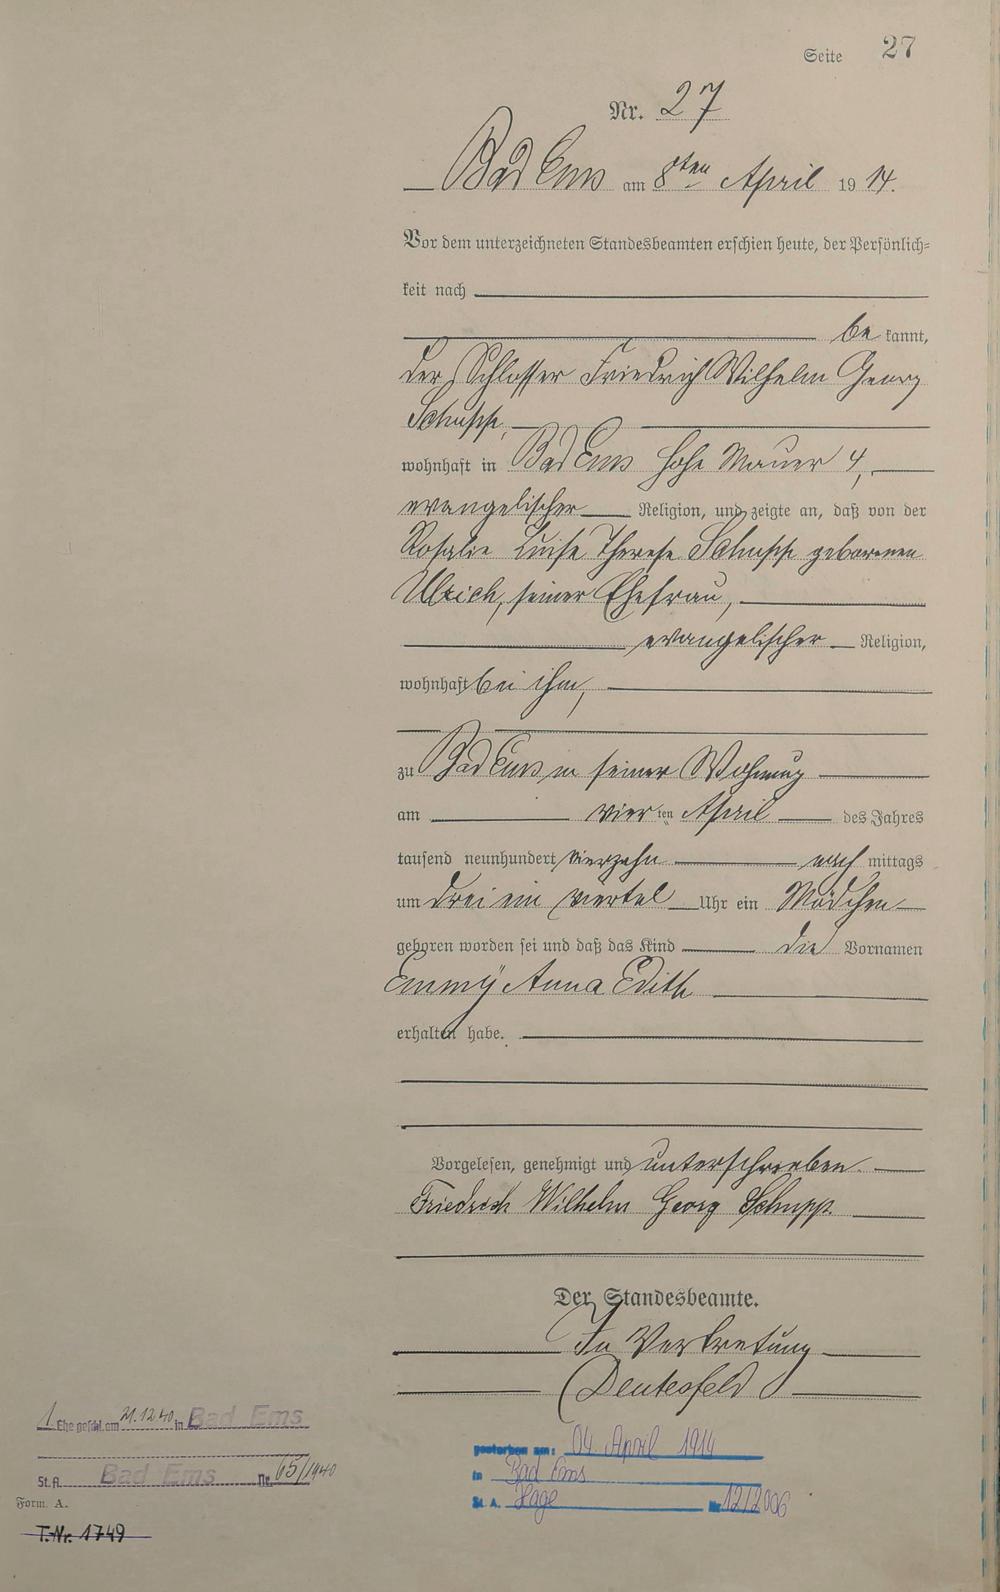 Seite 27
Nr. 27
Bad Ems am 8ten April 1914.
Vor dem unterzeichneten Standesbeamten erschien heute, der Persönlich-
keit nach
be kannt,
der Schlosser Friedrich Wilhelm Georg
Schupp,
wohnhaft in Bad Ems Hohe Mauer 4,
evangelischer Religion, und zeigte an, daß von der
Rosalie Luise Therese Schupp geborenen
Ulrich, seiner Ehefrau,
evangelischer Religion,
wohnhaft bei ihm,
zu Bad Ems in seiner Wohnung
am vierten April des Jahres
tausend neunhundert vierzehn nach mittags
um drei ein viertel Uhr ein Mädchen
geboren worden sei und daß das Kind die Vornamen
Emmÿ Anna Edith
erhalten habe.
Vorgelesen, genehmigt und unterschrieben.
Friedrich Wilhelm Georg Schupp
Der Standesbeamte.
In Vertretung
Deutesfeld
1. Ehe geschl. am 21.12.40 in Bad Ems
St. A. Bad Ems Nr. 65/1940
Form. A.
T. Nr. 1749
gestorben am: 04. April 1914
in Bad Ems
St. A. Hage Nr. 12/2006